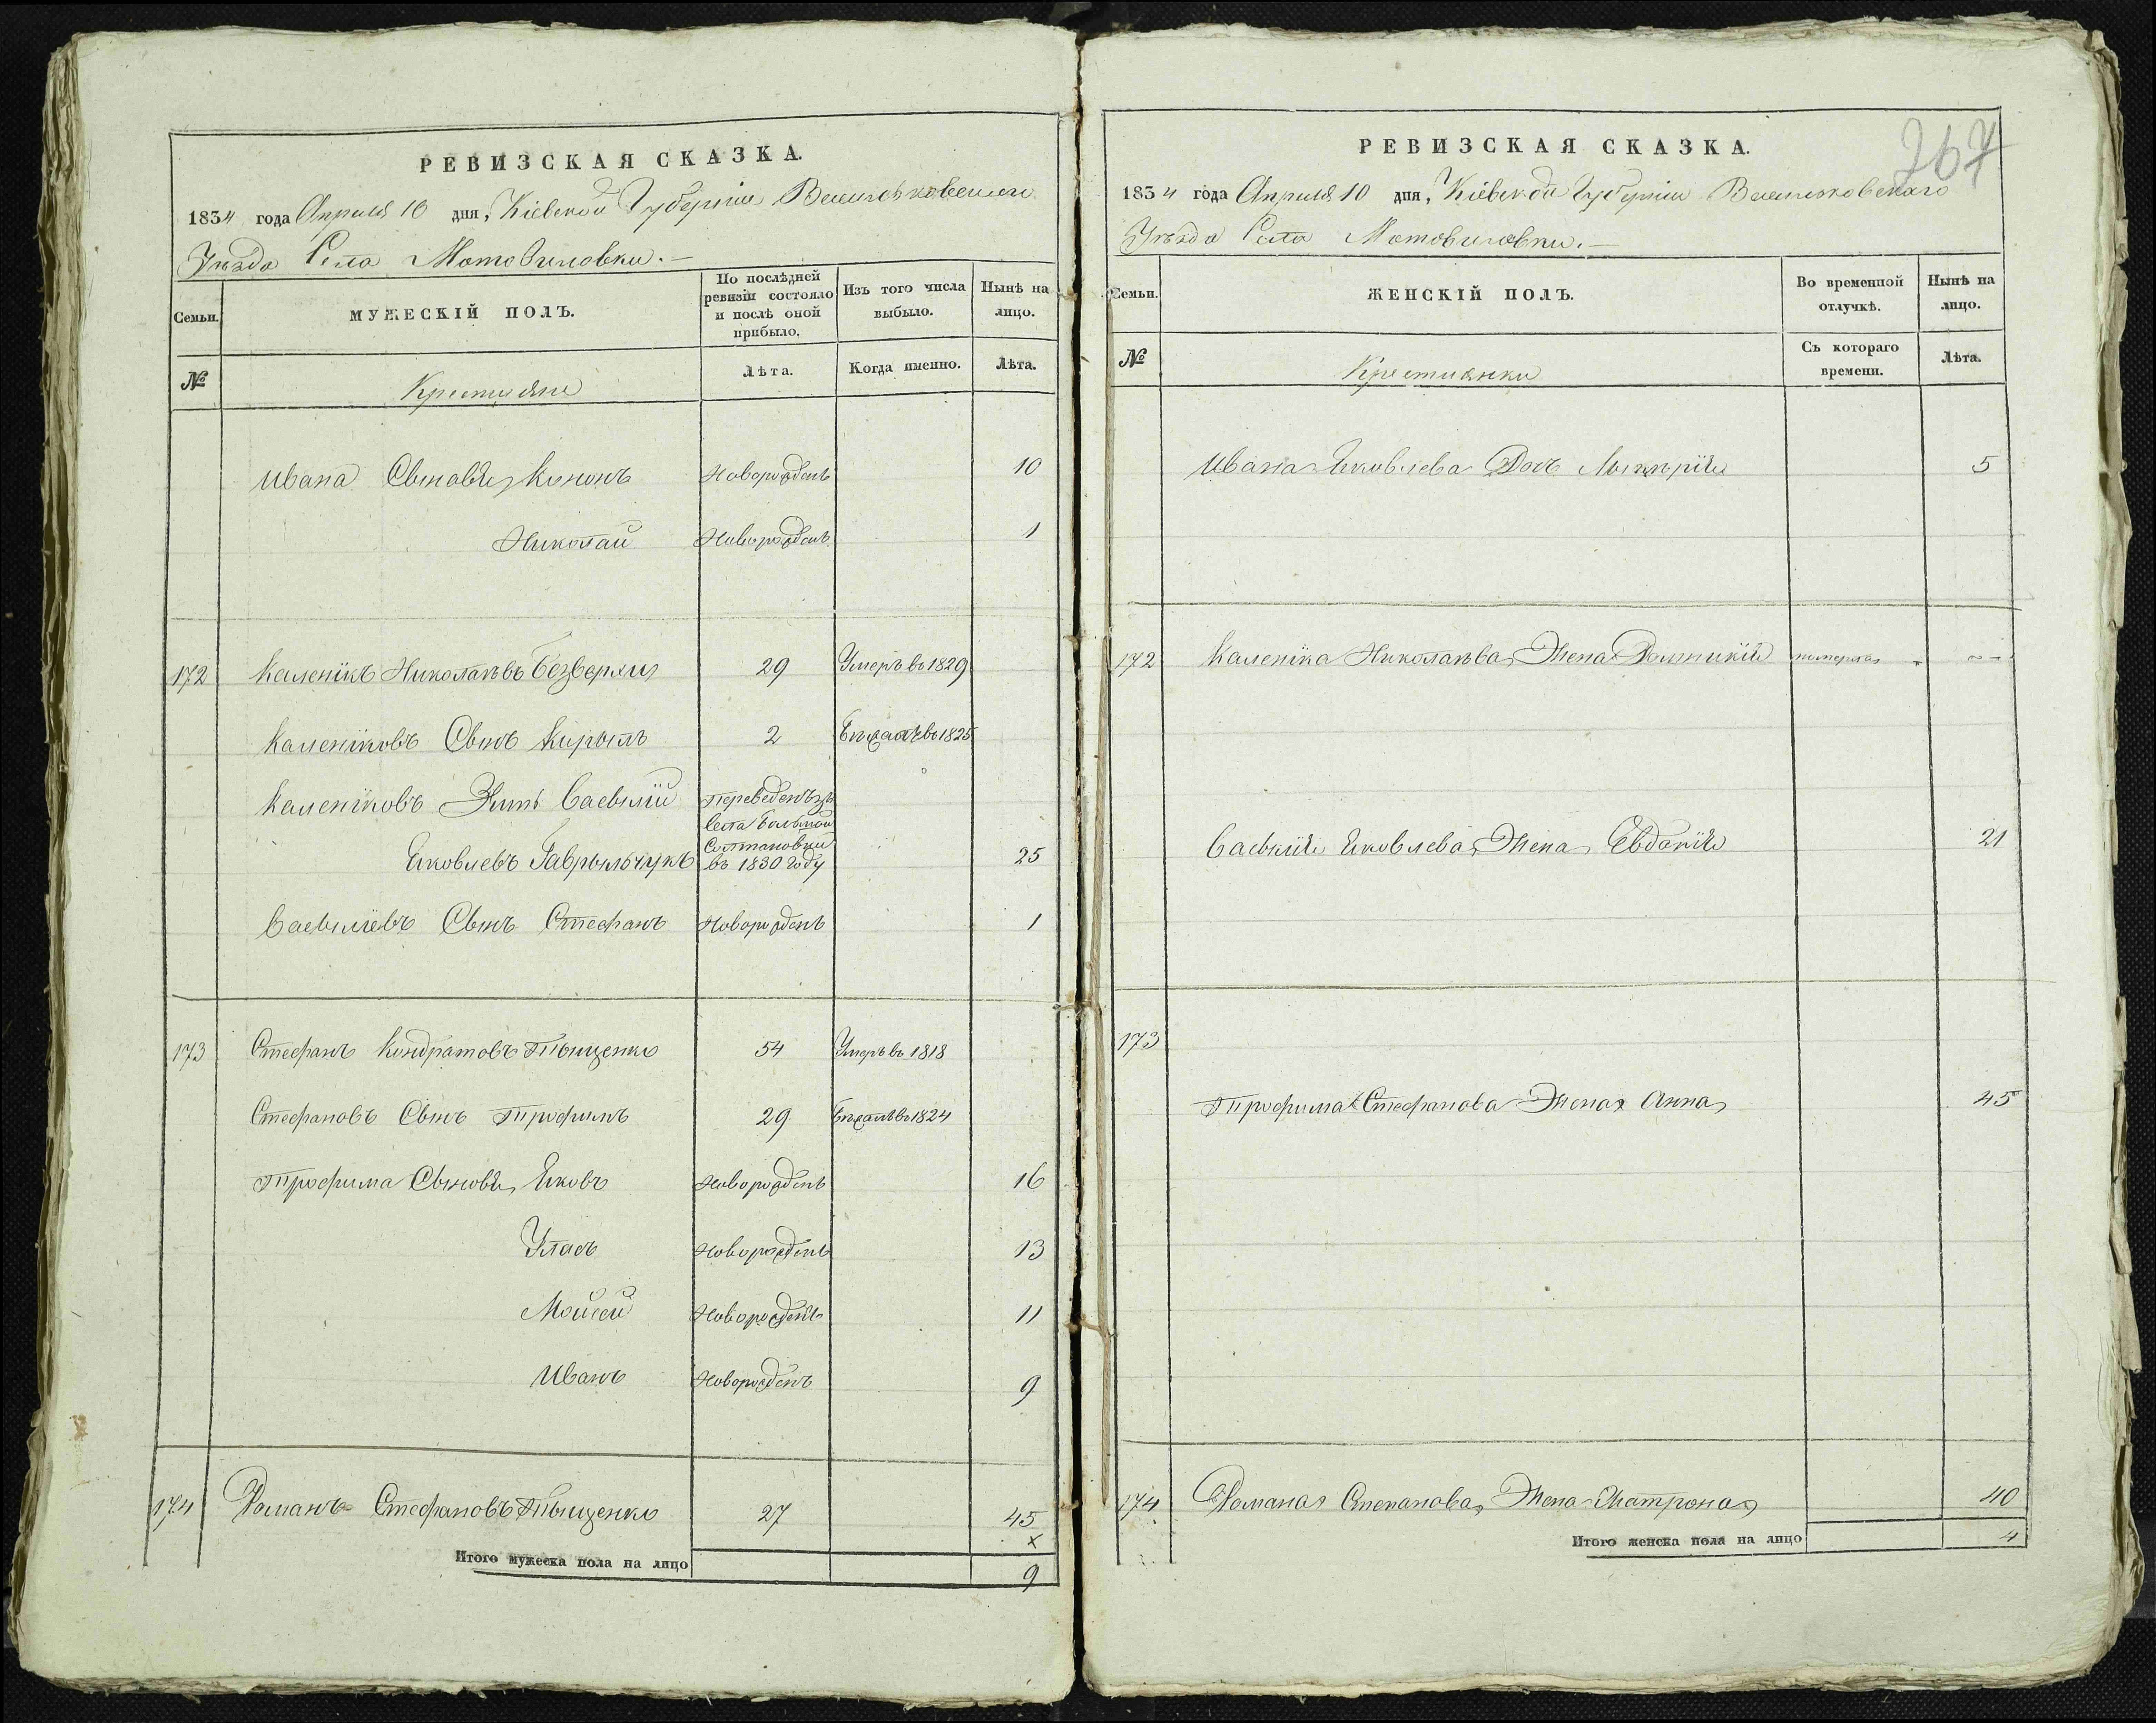 РЕВИЗСКАЯ СКАЗКА.
1834 года Апреля 10 дня, Кіевской Губерніи Васильковскаго
Уѣзда Села Мотовиловки.—
Семьи. МУЖЕСКІЙ ПОЛЪ. По послѣдней ревизіи состояло и послѣ оной прибыло. Изъ того числа выбыло. Нынѣ на лицо.
№ Крестьяне Лѣта. Когда именно. Лѣта.
Ивана Сыновья Кинонъ Новорожденъ 10
Николай Новорожденъ 1
172 Каленікъ Николаевъ Безверхи 29 Умеръ въ 1829
Каленіковъ Сынъ Кирылъ 2 въ 1825
Каленіковъ Зять Васылій Переведенъ изъ
Села Большой
Солтановки
Яковлевъ Гаврыльчукъ въ 1830 году 25
Васыліевъ Сынъ Стефанъ Новорожденъ 1
173 Стефанъ Кондратовъ Тыщенко 54 Умеръ въ 1818
Стефановъ Сынъ Трофимъ 29 въ 1824
Трофима Сыновья Яковъ Новорожденъ 16
Уласъ Новорожденъ 13
Мойсей Новорожденъ 11
Иванъ Новорожденъ 9
174 Романъ Стефановъ Тыщенко 27 45
х
Итого мужеска пола на лицо 9
267
РЕВИЗСКАЯ СКАЗКА.
1834 года Апреля 10 дня, Кіевской Губерніи Васильковскаго
Уѣзда Села Мотовиловки.—
Семьи. ЖЕНСКІЙ ПОЛЪ. Во временной отлучкѣ. Нынѣ на лицо.
№ Крестьянки Съ котораго времени. Лѣта.
Ивана Яковлева Дочь 5
172 Каленіка Николаева Жена
Васылія Яковлева Жена Евдокія 21
173
Трофима Стефанова Жена Анна 45
174 Романа Степанова Жена Матрона 40
Итого женска пола на лицо 4